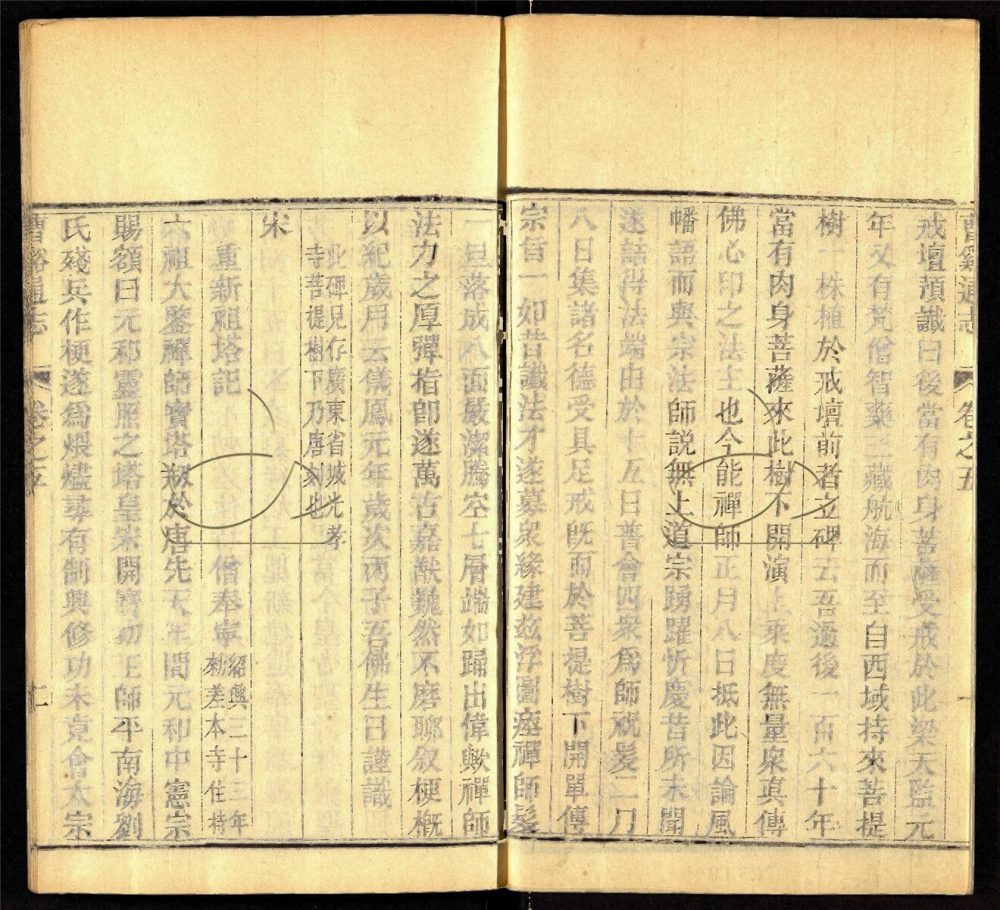 曹谿通志 卷之五
戒壇預讖曰後當有肉身菩薩受戒於此梁天監元
年又有梵僧智藥三藏航海而至自西域持來菩提
樹一株植於戒壇前者立碑云吾過後一百六十年
當有肉身菩薩來此樹下開演上乘度無量衆真傳
佛心印之法主也今能禪師正月八日抵此因論風
幡語而與宗法師說無上道宗踴躍忻慶昔所未聞
遂詰得法端由於十五日普會四衆爲師祝髮二月
八日集諸名德受具足戒旣而於菩提樹下開單傳
宗旨一如昔讖法才遂募衆緣建兹浮圖瘞禪師髮
一旦落成八面嚴潔騰空七層端如踴出偉歟禪師
法力之厚彈指卽遂萬古嘉猷巍然不磨聊叙梗槪
以紀歲月云儀鳳元年歲次丙子吾佛生日謹識
此碑見存廣東省城光孝
寺菩提樹下乃唐刻也
宋
重新祖塔記 僧奉寧 紹興二十三年
勑差本寺住持
六祖大鑒禪師寶塔剏於唐先天年間元和中憲宗
賜額曰元和靈照之塔皇宋開寶初王師平南海劉
氏殘兵作梗遂爲煨燼尋有制興修功未竟會太宗
曹谿通志 卷之五